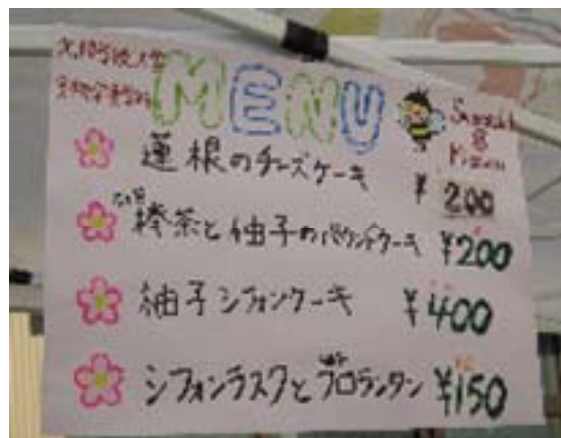 MENU
蓮根のチーズケーキ ¥200
茶と柚子のパウンドケーキ ¥200
柚子シフォンケーキ ¥400
シフォンラスクとフロランタン ¥150